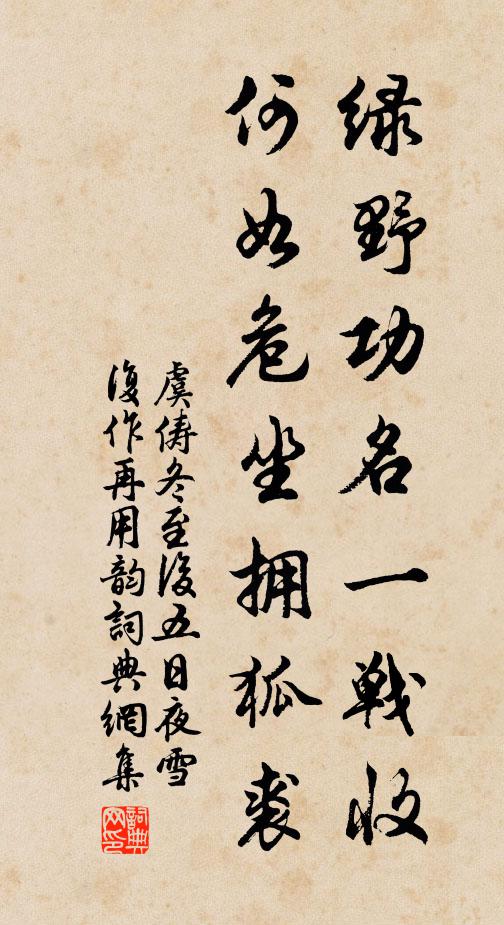 绿野功名一戦收
何如危坐拥狐裘
虞俦冬至后五日夜雪
复作再用韵词典網集
詞典网印